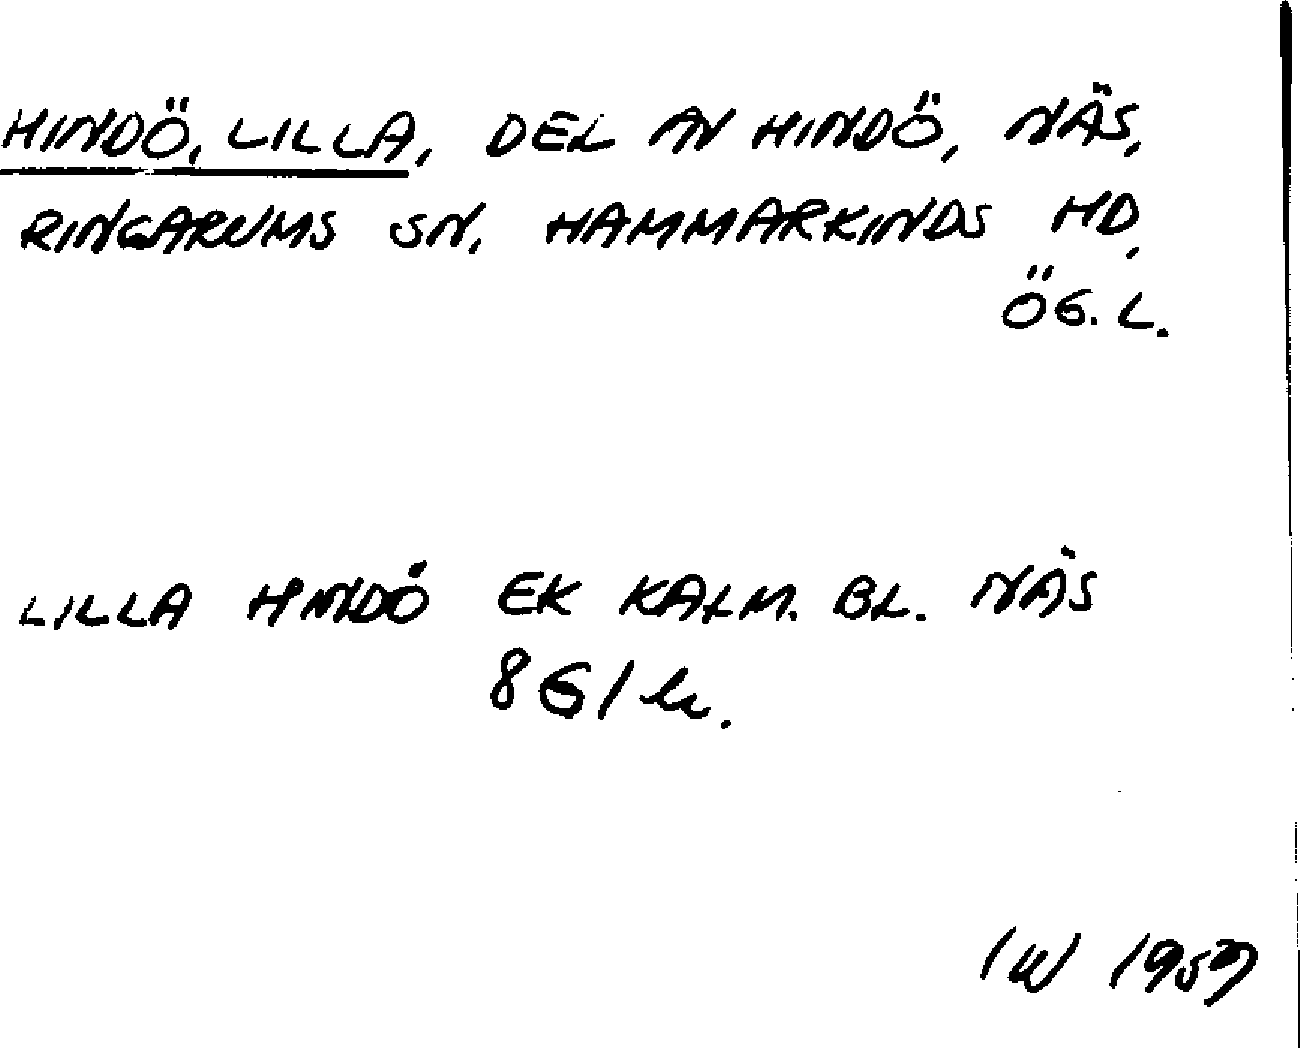 HINDÖ, LILLA, DEL AV HINDÖ, NÄS,
RINGARUMS SN, HAMMARKINDS HD,
ÖG. L.
LILLA HINDÖ EK KALM. BL. NÄS
IW 1959